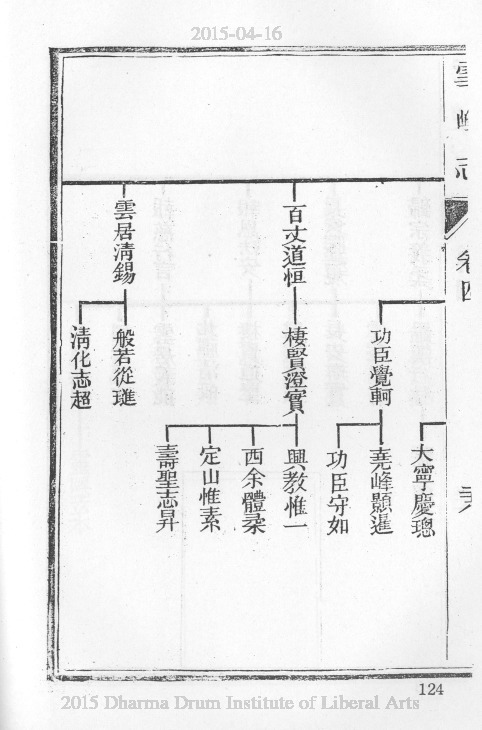 2015-04-16
卷四
大寧慶璁
功臣覺軻
堯峰顥暹
功臣守如
百丈道恒
棲賢澄實
興教惟一
西余體柔
定山惟素
壽聖志昇
雲居清錫
般若從璡
清化志超
124
2015 Dharma Drum Institute of Liberal Arts